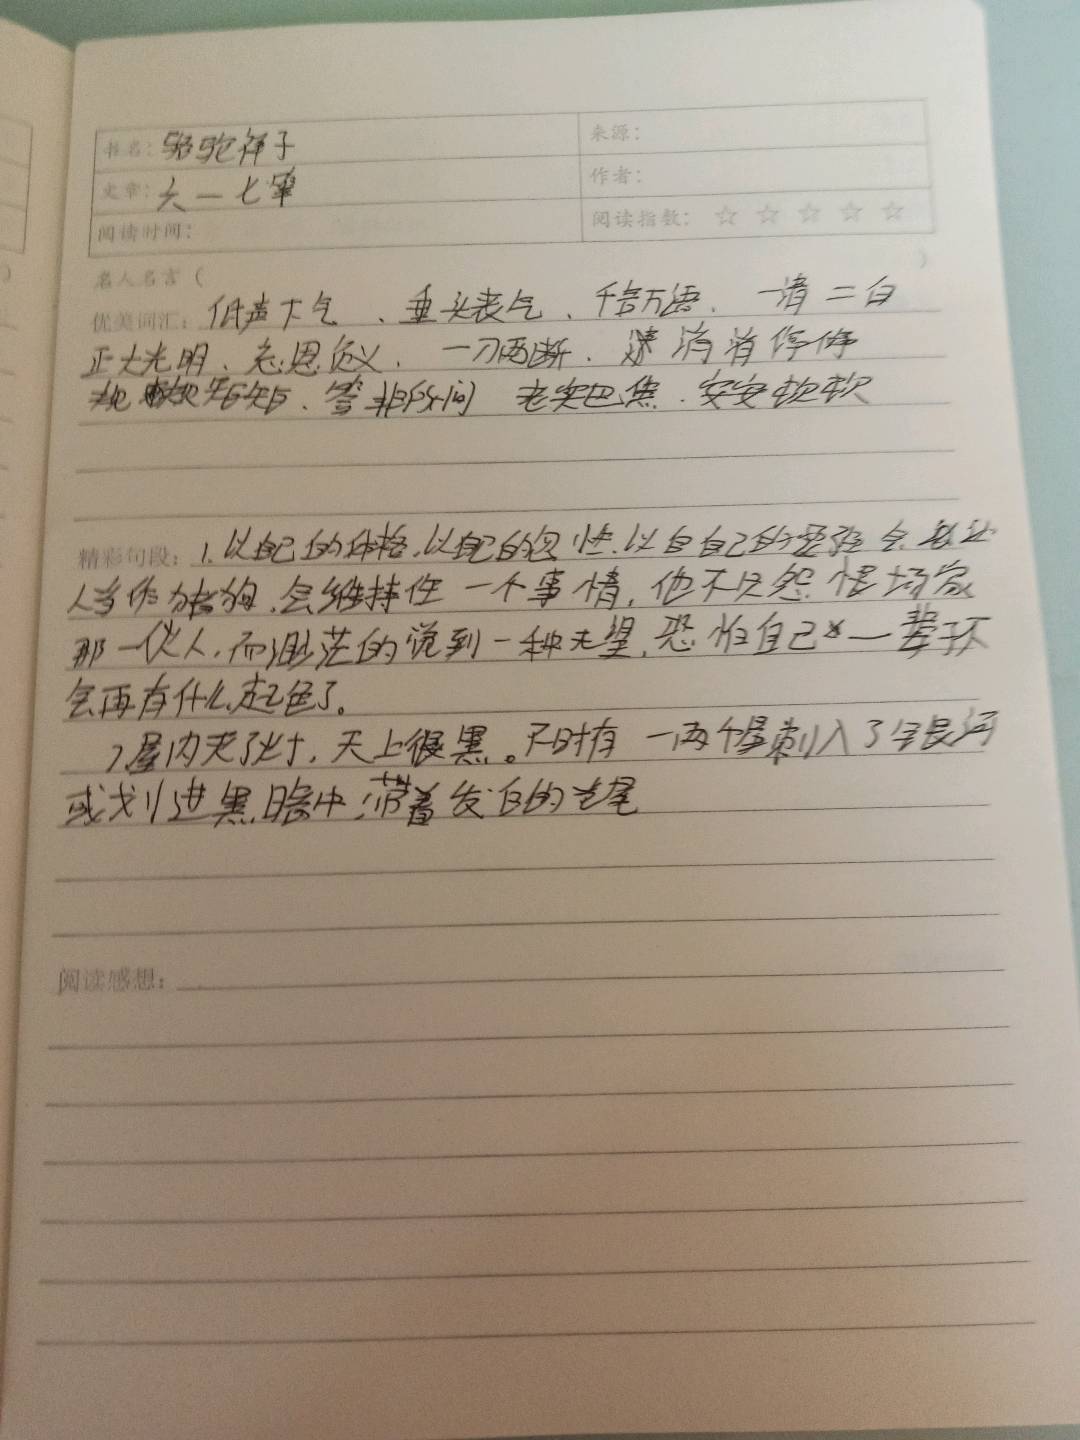 书名：骆驼祥子 来源：
文章：六一七章 作者：
阅读时间： 阅读指数：☆ ☆ ☆ ☆ ☆
名人名言（ ）
优美词汇：低声下气、垂头丧气、千言万语、一清二白
正大光明、忘恩负义、一刀两断、停停
答非所问 老实巴焦、安安
精彩句段：1.以自己的体格,以自己的忍性,以自自己的 会
人当作猪狗,会维持住一个事情,他不只怨恨杨家
那一伙人,而渺茫的觉到一种无望,恐怕自己一辈子不
会再有什么起色了。
屋内灭了灯,天上很黑。不时有一两个星刺入了银河
或划进黑暗中,带着发白的光尾
阅读感想：